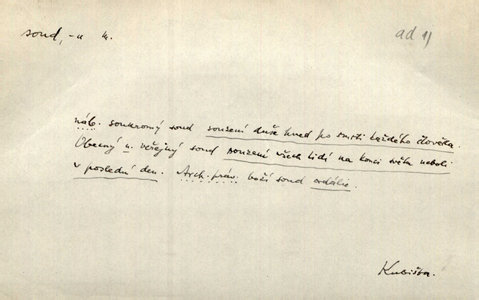 soud, -u m.
ad 1)
náb. soukromý soud souzení duše hned po smrti každého člověka.
Obecný n. veřejný soud souzení všech lidí na konci světa neboli
v poslední den. Arch. práv. boží soud ordálie.
Kubišta.